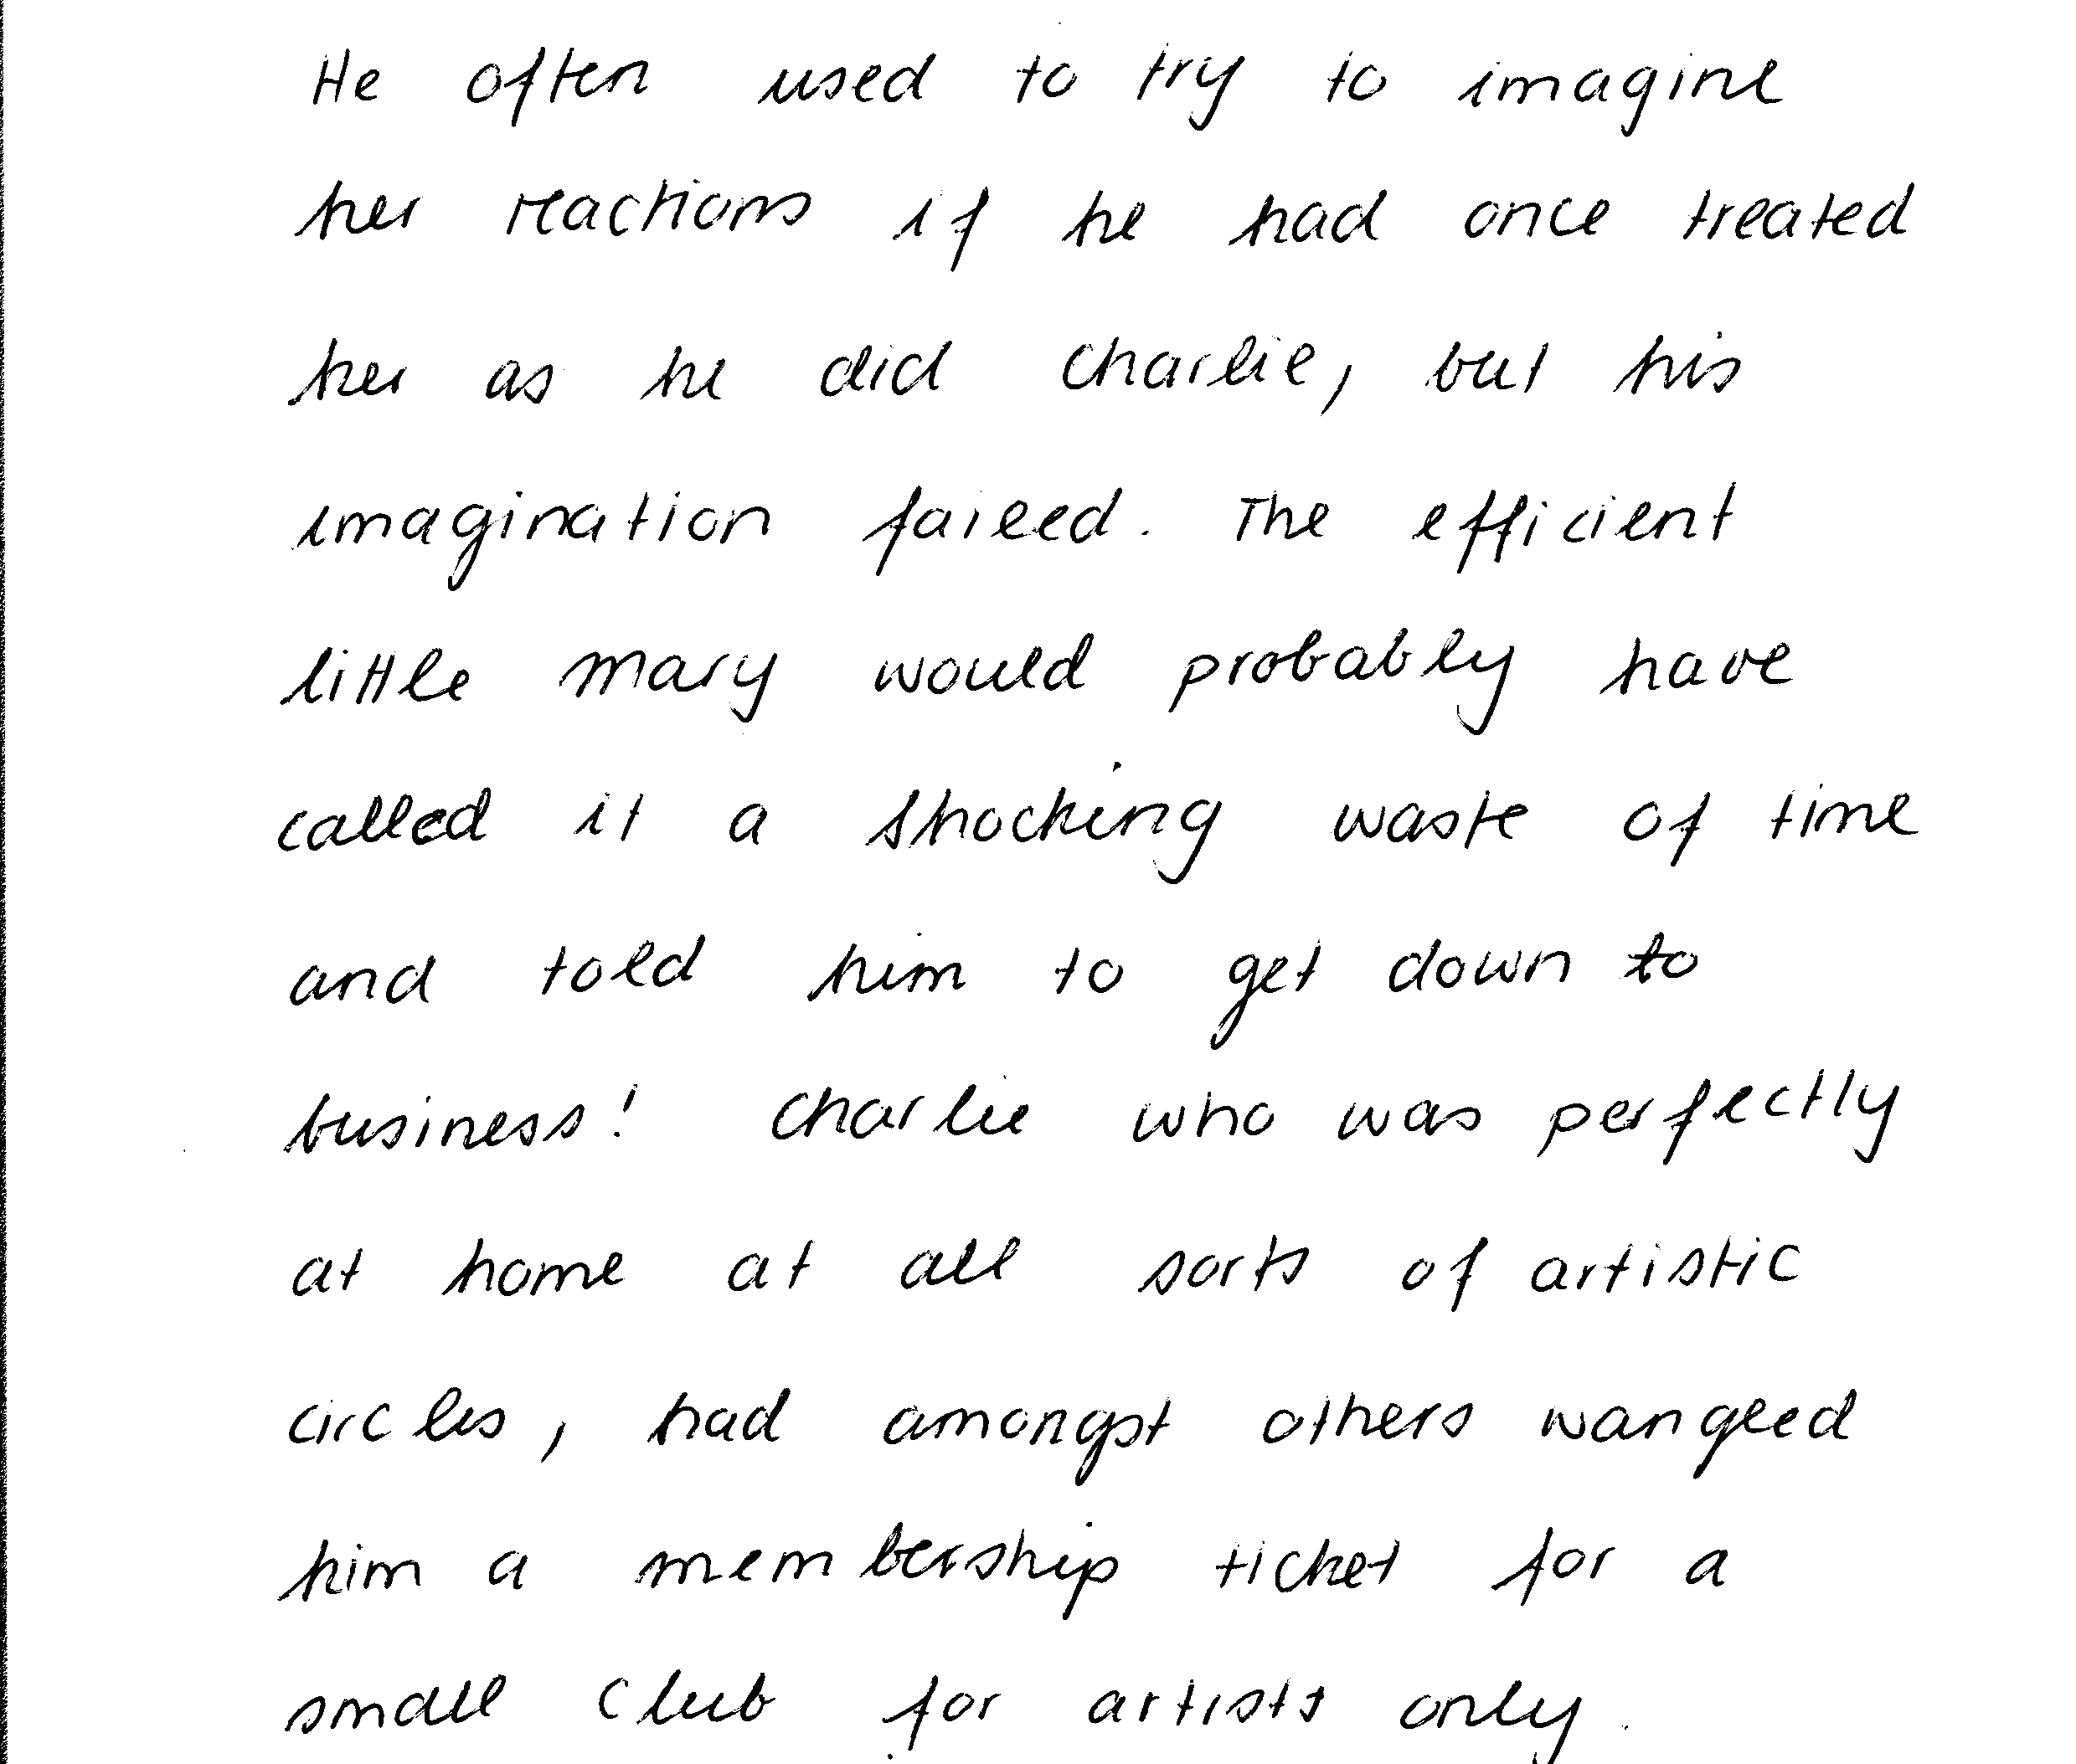 He often used to try to imagine
her reactions if he had once treated
her as he did Charlie, but his
imagination failed. The efficient
little Mary would probably have
called it a shocking waste of time
and told him to get down to
business! Charlie who was perfectly
at home at all sorts of artistic
circles, had amongst others wangled
him a membership ticket for a
small club for artists only.